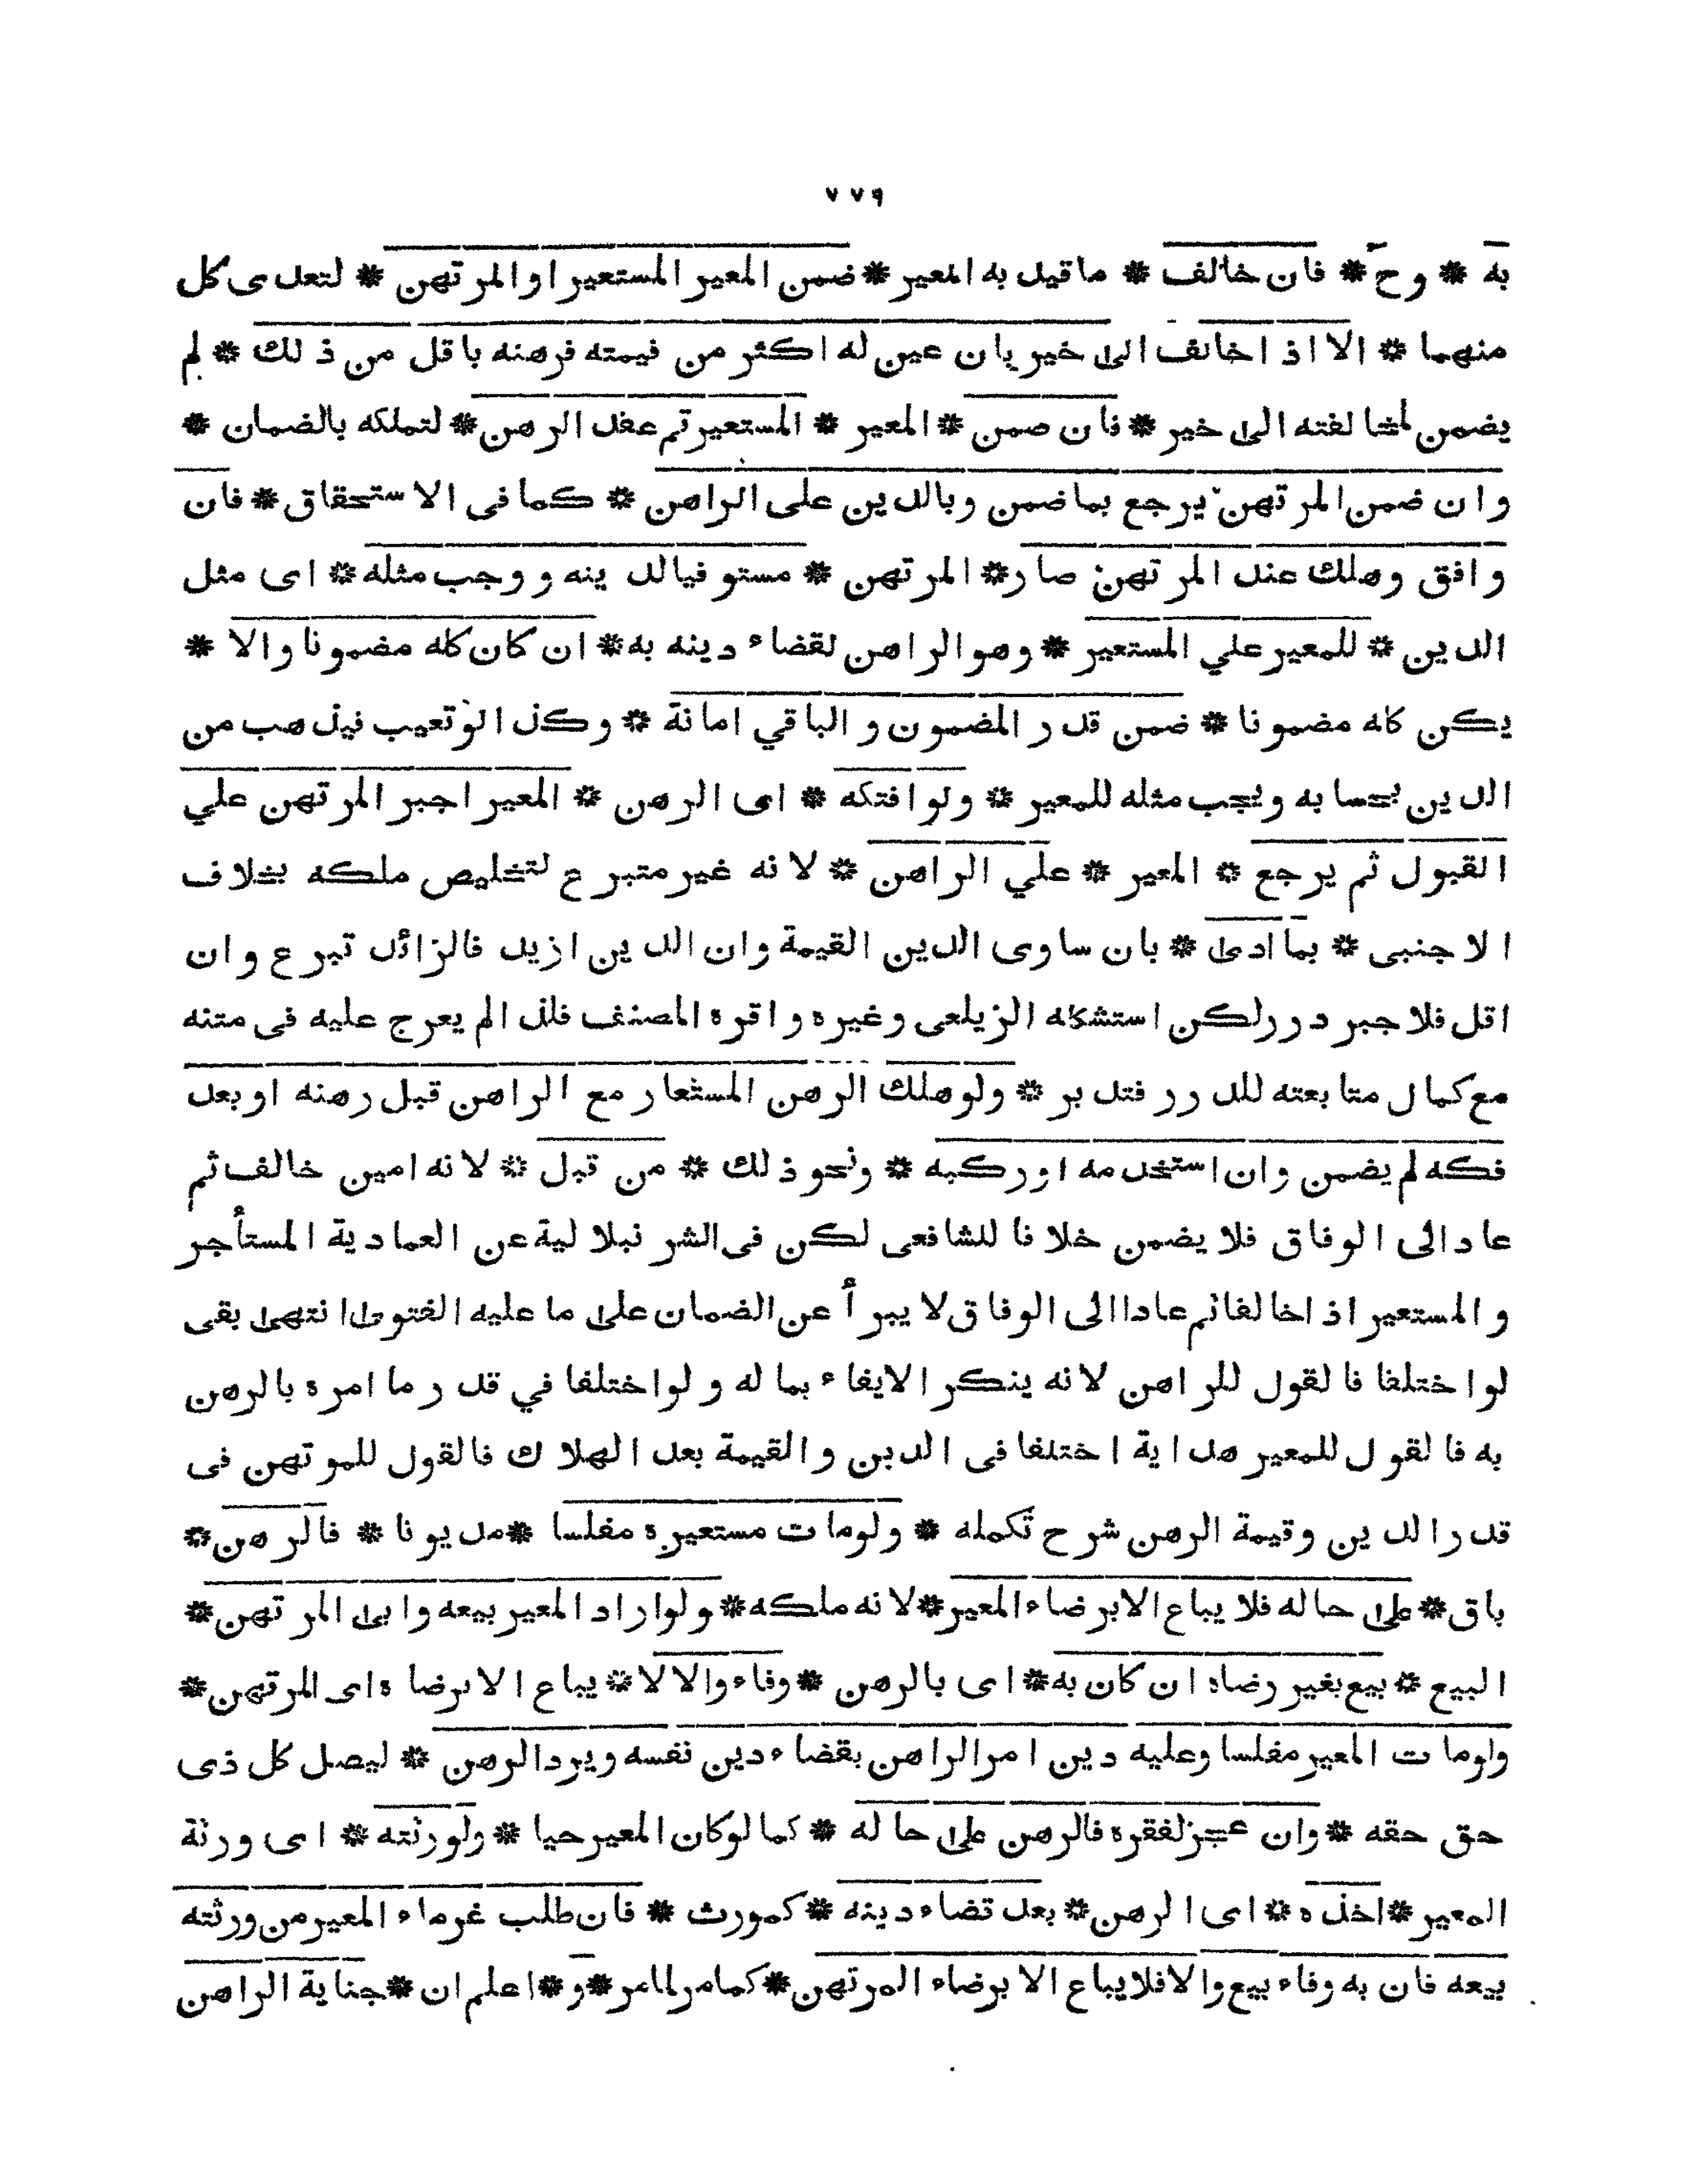 ٧٧٩
به * وح * فان خالف * ماقيد به المعير * ضمن المعير المستعير او المرتهن * لتعدى كل
منهما * الا اذا خالف الى خير بان عين له اكثر من قيمته فرهنه باقل من ذلك * لم
يضمن لمخالفته الى خير * فان ضمن * المعير * المستعير تم عقد الرهن * لتملكه بالضمان *
وان ضمن المرتهن يرجع بما ضمن وبالدين على الراهن * كما فى الاستحقاق * فان
وافق وهلك عند المرتهن صار * المرتهن * مستوفيا لدينه ووجب مثله * اى مثل
الدين * للمعير علي المستعير * وهو الراهن لقضاء دينه به * ان كان كله مضمونا والا *
يكن كله مضمونا * ضمن قدر المضمون والباقي امانة * وكذا لو تعيب فيذهب من
الدين بحسابه ويجب مثله للمعير * ولو افتكه * اى الرهن * المعير اجبر المرتهن علي
القبول ثم يرجع * المعير * علي الراهن * لانه غير متبرع لتخليص ملكه بخلاف
الاجنبى * بما ادى * بان ساوى الدين القيمة وان الدين ازيد فالزائد تبرع وان
اقل فلا جبر درر لكن استشكله الزيلعى وغيره واقره المصنف فلذا لم يعرج عليه فى متنه
مع كمال متابعته للدرر فتدبر * ولو هلك الرهن المستعار مع الراهن قبل رهنه او بعد
فكه لم يضمن وان استخدمه او ركبه * ونحو ذلك * من قبل * لانه امين خالف ثم
عاد الى الوفاق فلا يضمن خلافا للشافعى لكن فى الشرنبلالية عن العمادية المستأجر
والمستعير اذا خالفا ثم عادا الى الوفاق لا يبرأ عن الضمان على ما عليه الفتوى انتهى بقى
لو اختلفا فالقول للراهن لانه ينكر الايفاء بماله ولو اختلفا في قدر ما امره بالرهن
به فالقول للمعير هداية اختلفا فى الدين والقيمة بعد الهلاك فالقول للمرتهن فى
قدر الدين وقيمة الرهن شرح تكمله * ولو مات مستعيره مفلسا * مديونا * فالرهن *
باق * على حاله فلا يباع الا برضاء المعير * لانه ملكه * ولو اراد المعير بيعه وابى المرتهن *
البيع * بيع بغير رضاه ان كان به * اى بالرهن * وفاء والا لا * يباع الا برضاه اى المرتهن *
ولو مات المعير مفلسا وعليه دين امر الراهن بقضاء دين نفسه ويرد الرهن * ليصل كل ذى
حق حقه * وان عجز لفقره فالرهن على حاله * كما لو كان المعير حيا * ولورثته * اى ورثة
المعير * اخذه * اى الرهن * بعد قضاء دينه * كمورث * فان طلب غرماء المعير من ورثته
بيعه فان به وفاء بيع والا فلا يباع الا برضاء المرتهن * كما مر لما مر * و * اعلم ان * جناية الراهن